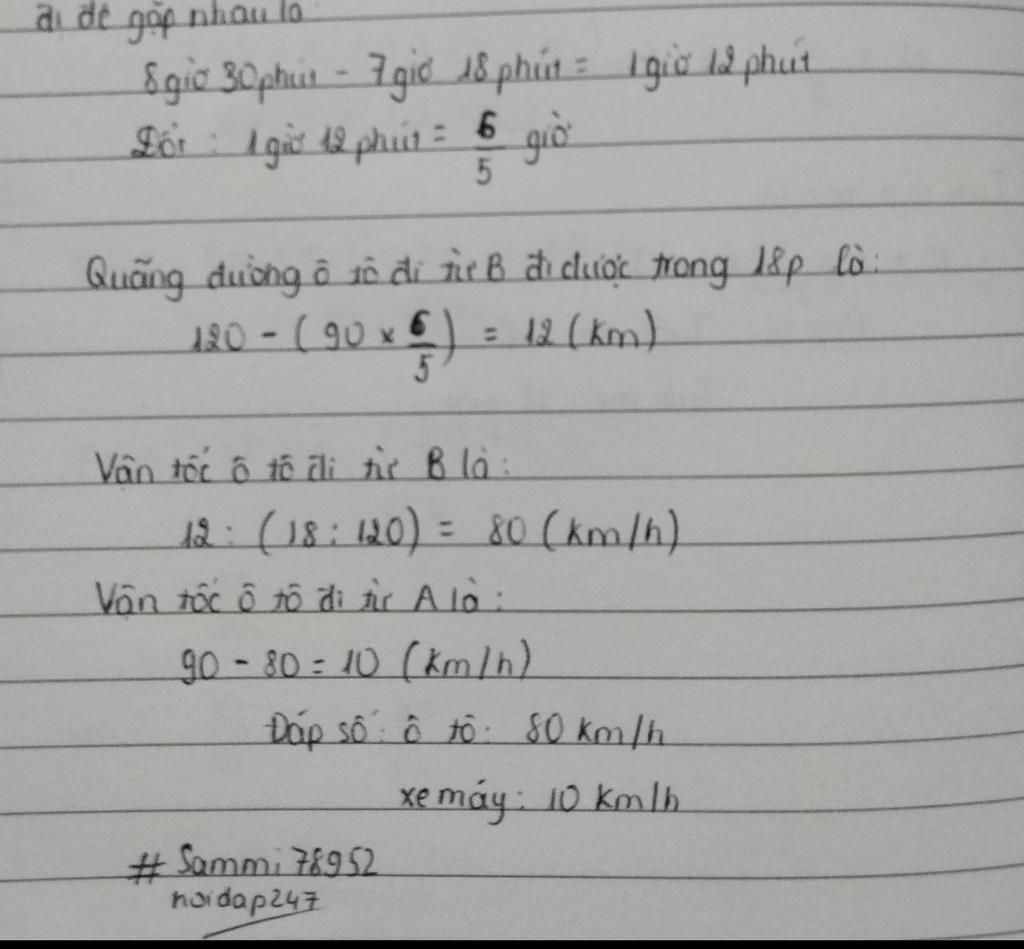 đi để gặp nhau là
8 giờ 30 phút - 7 giờ 18 phút = 1 giờ 12 phút
Đổi : 1 giờ 12 phút = 6/5 giờ
Quãng đường ô tô đi từ B đi được trong 18p là:
120 - ( 90 x 6/5 ) = 12 (km)
Vận tốc ô tô đi từ B là :
12 : ( 18 : 120 ) = 80 (km/h)
Vận tốc ô tô đi từ A là :
90 - 80 = 10 (km/h)
Đáp số : ô tô : 80 km/h
xe máy : 10 km/h
# Sammi78952
hoidap247